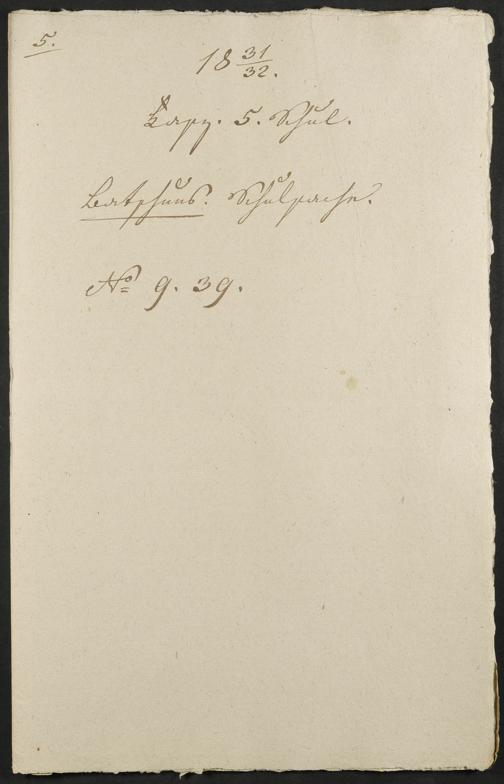 5.
18 31/32.
Kapz. 5. Schul.
Batschuns. Schulsache.
No 9. 39.